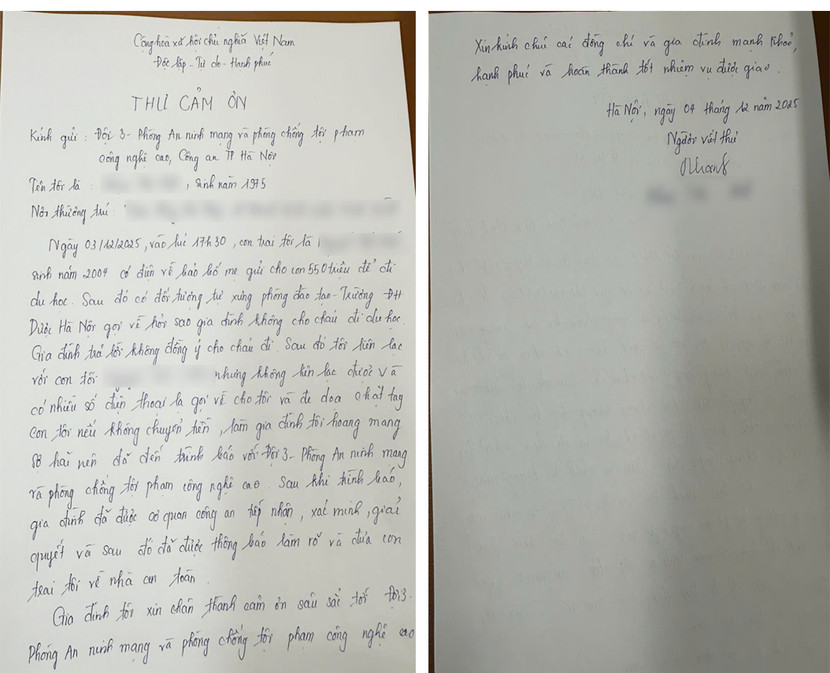 Cộng hòa xã hội chủ nghĩa Việt Nam
Độc lập - Tự do - Hạnh phúc
THƯ CẢM ƠN
Kính gửi : Đội 3 - Phòng An ninh mạng và phòng chống tội phạm
công nghệ cao, Công an TP Hà Nội
Tên tôi là : , sinh năm 1975
Nơi thường trú :
Ngày 03/12/2025, vào lúc 17h30, con trai tôi là
sinh năm 2004 có điện về bảo bố mẹ gửi cho con 550 triệu để đi
du học. Sau đó có đối tượng tự xưng phòng đào tạo - Trường ĐH
Dược Hà Nội gọi về hỏi sao gia đình không cho cháu đi du học.
Gia đình trả lời không đồng ý cho cháu đi. Sau đó tôi liên lạc
với con tôi nhưng không liên lạc được và
có nhiều số điện thoại lạ gọi về cho tôi và đe dọa chặt tay
con tôi nếu không chuyển tiền, làm gia đình tôi hoang mang
sợ hãi nên đã đến trình báo với Đội 3 - Phòng An ninh mạng
và phòng chống tội phạm công nghệ cao. Sau khi trình báo,
gia đình đã được cơ quan công an tiếp nhận, xác minh, giải
quyết và sau đó đã được thông báo làm rõ và đưa con
trai tôi về nhà an toàn.
Gia đình tôi xin chân thành cảm ơn sâu sắc tới Đội 3 -
Phòng An ninh mạng và phòng chống tội phạm công nghệ cao
Xin kính chúc các đồng chí và gia đình mạnh khoẻ,
hạnh phúc và hoàn thành tốt nhiệm vụ được giao.
Hà Nội, ngày 04 tháng 12 năm 2025
Người viết thư